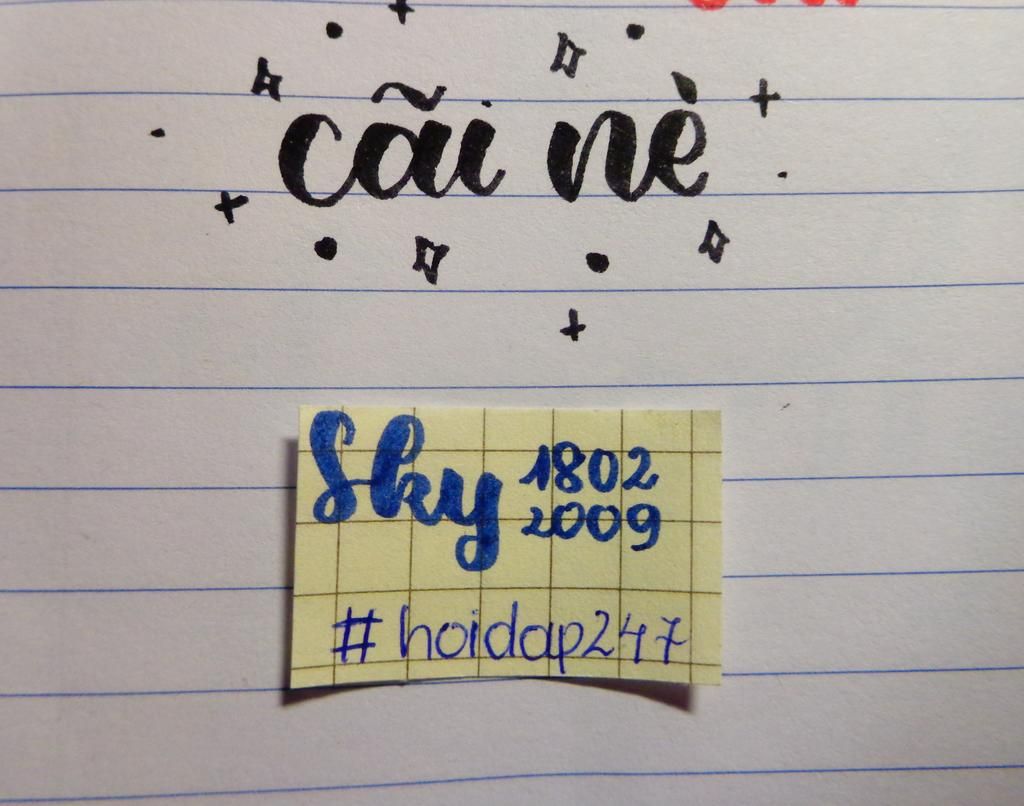 cãi nè
Sky 1802
2009
#hoidap247